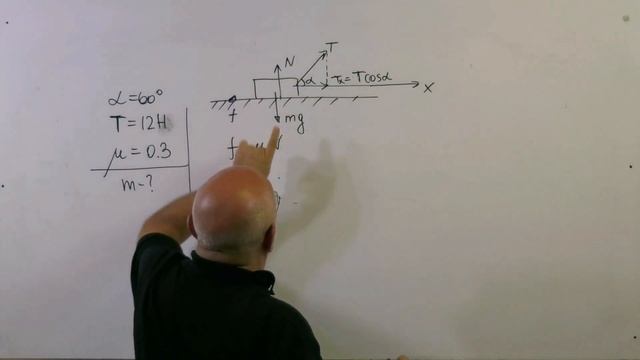 α=60°
T=12H
μ=0.3
m-?
N
T
α
Tx=Tcosα
x
f
mg
f